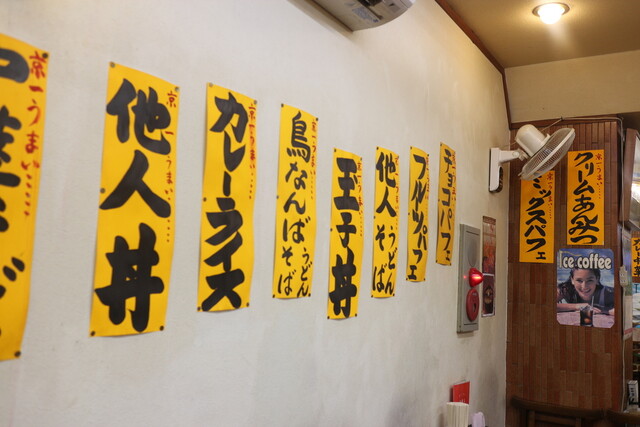 京一うまい…
京一うまい…
他人丼
京一うまい…
カレーライス
京一うまい…
鳥なんば
うどん
そば
京一うまい…
玉子丼
京一うまい…
他人
うどん
そば
京一うまい…
フルーツパフェ
京一うまい…
チョコパフェ
ミックスパフェ
京一うまい…
クリームあんみつ
Ice coffee